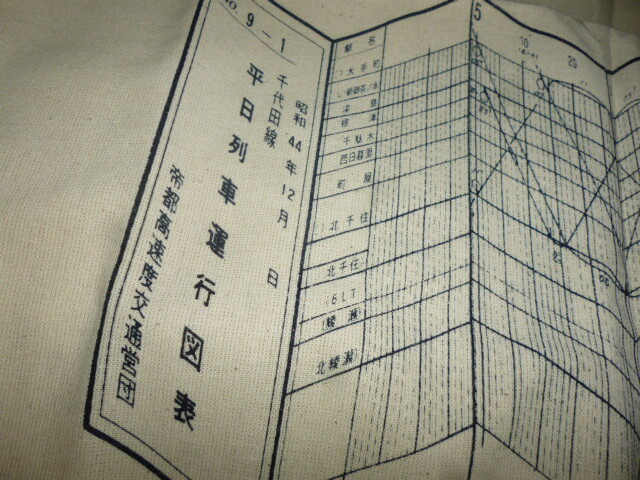 No. 9-1
昭和 44 年 12 月 日
千代田線
平日列車運行図表
帝都高速度交通営団
駅名
大手町
新御茶ノ水
湯島
根津
千駄木
西日暮里
町屋
北千住
北千住
6LT
(綾瀬)
北綾瀬
5
10
20